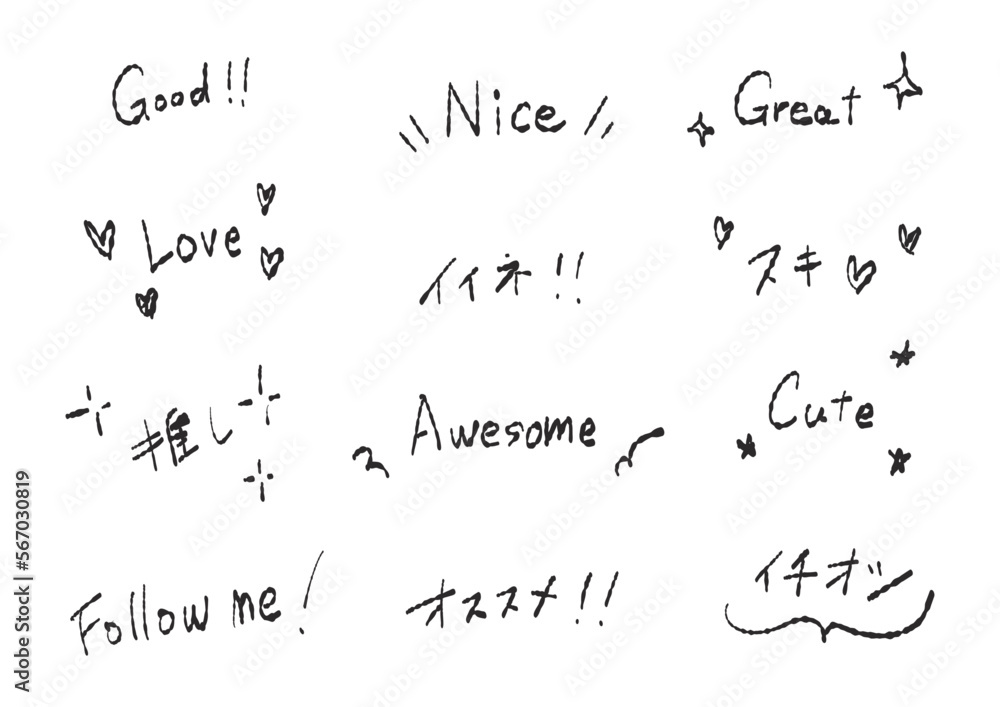 Good!!
Nice
Great
Love
イイネ!!
スキ
推し
Awesome
Cute
Follow me!
オススメ!!
イチオシ
Adobe Stock | #567030819